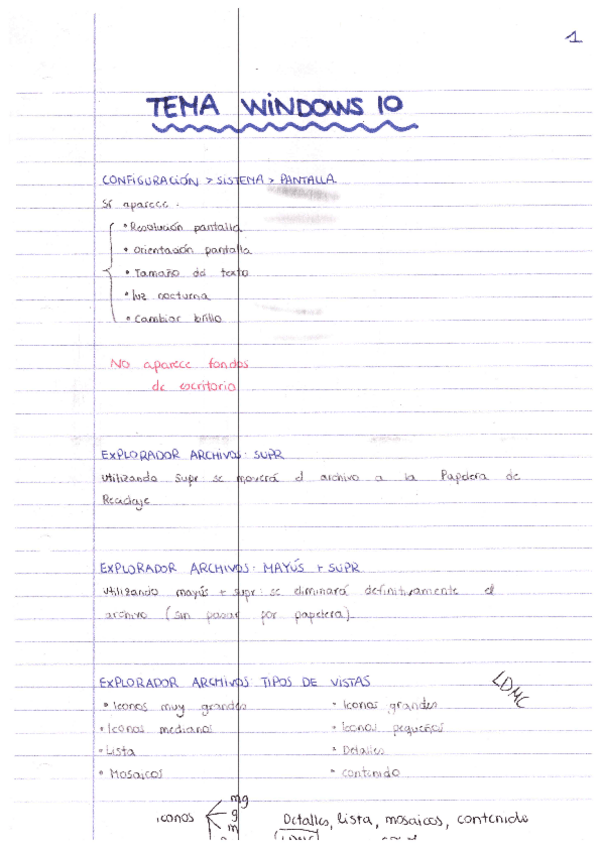 1
TEMA WINDOWS 10
CONFIGURACIÓN > SISTEMA > PANTALLA
Sí aparece:
• Resolución pantalla
• Orientación pantalla
• Tamaño del texto
• Luz nocturna
• Cambiar brillo
No aparece fondos
de escritorio
EXPLORADOR ARCHIVOS: SUPR
Utilizando Supr se moverá el archivo a la Papelera de
Reciclaje
EXPLORADOR ARCHIVOS: MAYÚS + SUPR
Utilizando mayús + supr: se eliminará definitivamente el
archivo (sin pasar por papelera)
EXPLORADOR ARCHIVOS TIPOS DE VISTAS
LDMC
• Iconos muy grandes • Iconos grandes
• Iconos medianos • Iconos pequeños
• Lista • Detalles
• Mosaicos • Contenido
mg
iconos g Detalles, lista, mosaicos, contenido
m